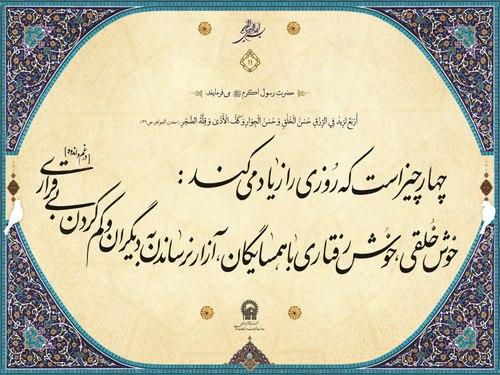 بسم الله الرحمن الرحیم
۱۱
حضرت رسول اکرم ﷺ می‌فرمایند:
أَربَعٌ تَزیدُ فِي الرِّزقِ حُسنُ الخُلقِ وَ حُسنُ الجِوارِ وَ کَفُّ الأَذی وَ قِلَّةُ الضَّجَرِ. (معدن الجواهر ص۳۹)
چهار چیز است که رُوزی را زیاد می‌کند :
خوش خُلقی، خُوش رفتاری با همسایگان، آزار نرساندن به دیگران و کم کردن بی قراری [در غم و اندوه]